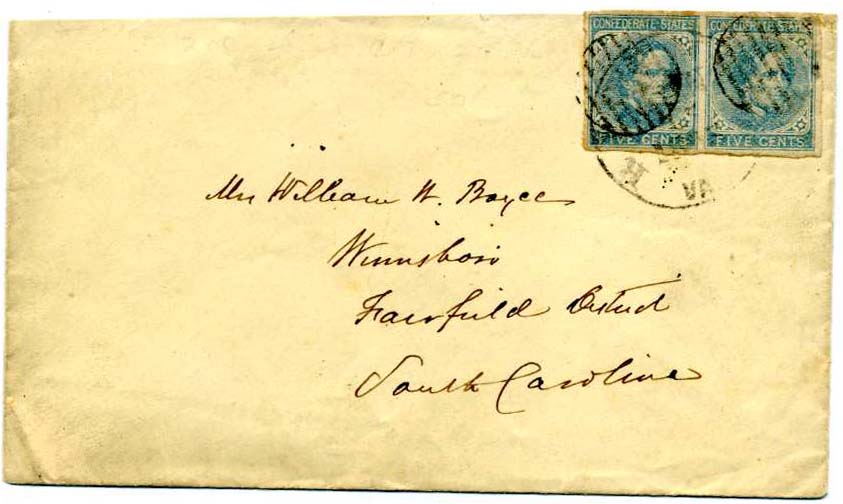 CONFEDERATE STATES CONFEDERATE STATES
FIVE CENTS FIVE CENTS
VA
Mrs William W. Boyce
Winnsboro
Fairfield District
South Carolina